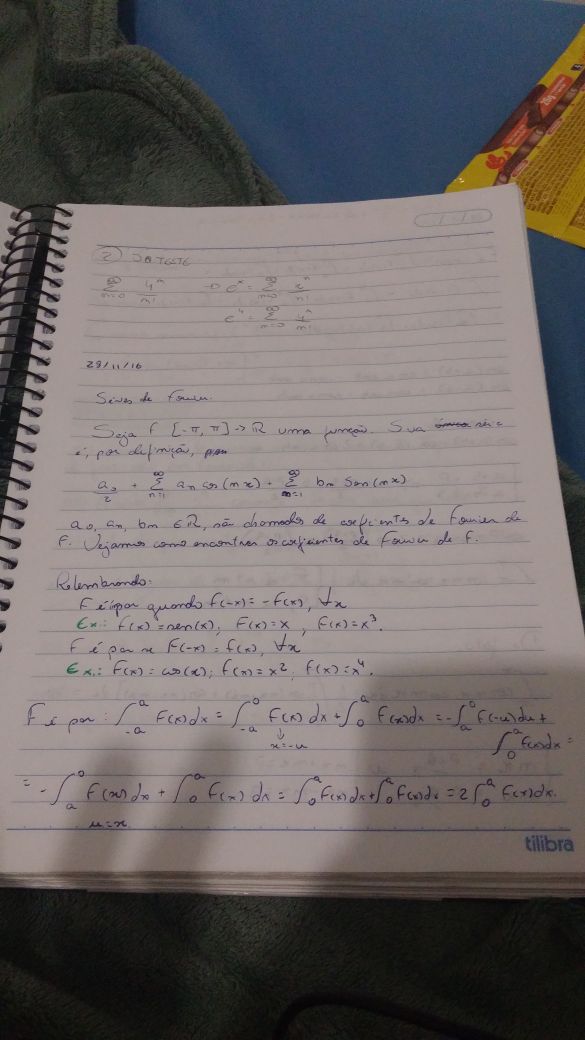 ② DO TESTE
∞ Σ n=0 4^n/n! → e^x = ∞ Σ n=0 x^n/n!
e^4 = ∞ Σ n=0 4^n/n!
28/11/16
Séries de Fourier.
Seja f [-π, π] → ℝ uma função. Sua série
é, por definição,
a₀/2 + ∞ Σ n=1 aₙ cos(nx) + ∞ Σ n=1 bₙ sen(nx)
a₀, aₙ, bₙ ∈ ℝ, são chamados de coeficientes de Fourier de
F. Vejamos como encontrar os coeficientes de Fourier de F.
Relembrando:
F é ímpar quando f(-x) = -f(x), ∀x
Ex.: f(x) = sen(x); F(x) = x, f(x) = x³.
F é par se F(-x) = f(x), ∀x
Ex.: F(x) = cos(x); f(x) = x², f(x) = x⁴.
F é par: ∫_{-a}^{a} F(x)dx = ∫_{-a}^{0} F(x)dx + ∫_{0}^{a} F(x)dx = -∫_{a}^{0} f(-u)du +
↓
x=-u
∫_{0}^{a} f(x)dx =
= -∫_{a}^{0} F(x)dx + ∫_{0}^{a} f(x)dx = ∫_{0}^{a} F(x)dx + ∫_{0}^{a} F(x)dx = 2∫_{0}^{a} F(x)dx.
u=x
tilibra